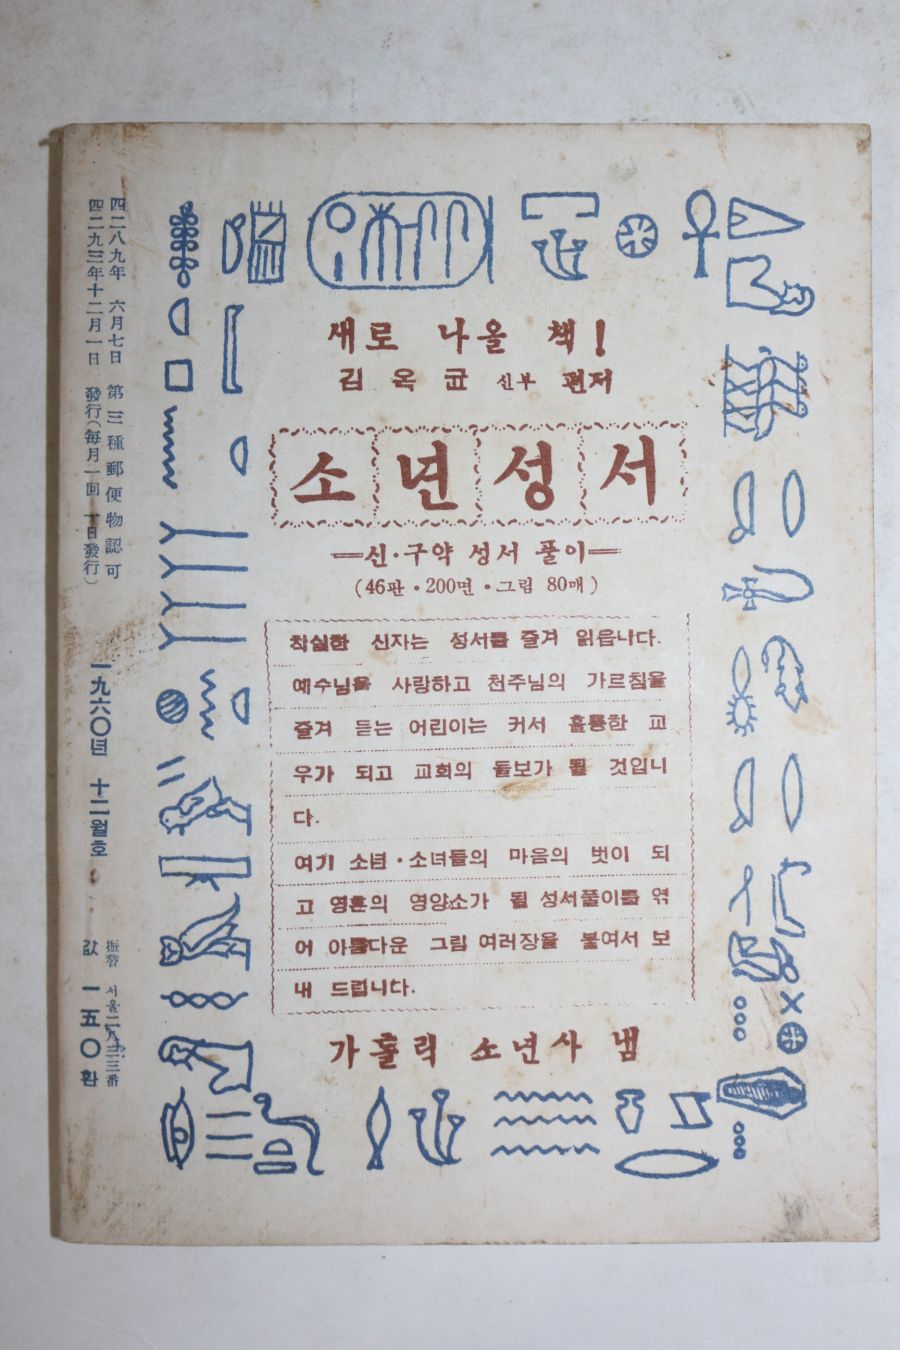 새로 나올 책!
김옥균 신부 편저
소년성서
=신·구약 성서 풀이=
(46판·200면·그림 80매)
착실한 신자는 성서를 즐겨 읽읍니다.
예수님을 사랑하고 천주님의 가르침을
즐겨 듣는 어린이는 커서 훌륭한 교
우가 되고 교회의 돌보가 될 것입니
다.
여기 소년·소녀들의 마음의 벗이 되
고 영혼의 영양소가 될 성서풀이를 엮
어 아름다운 그림 여러장을 붙여서 보
내 드립니다.
가톨릭 소년사 냄
四二八九年 六月七日 第三種郵便物認可
四二九三年十二月一日 發行(每月一回 一日發行)
一九六〇년 十二월호
振替 서울二八三三番
값 一五〇환